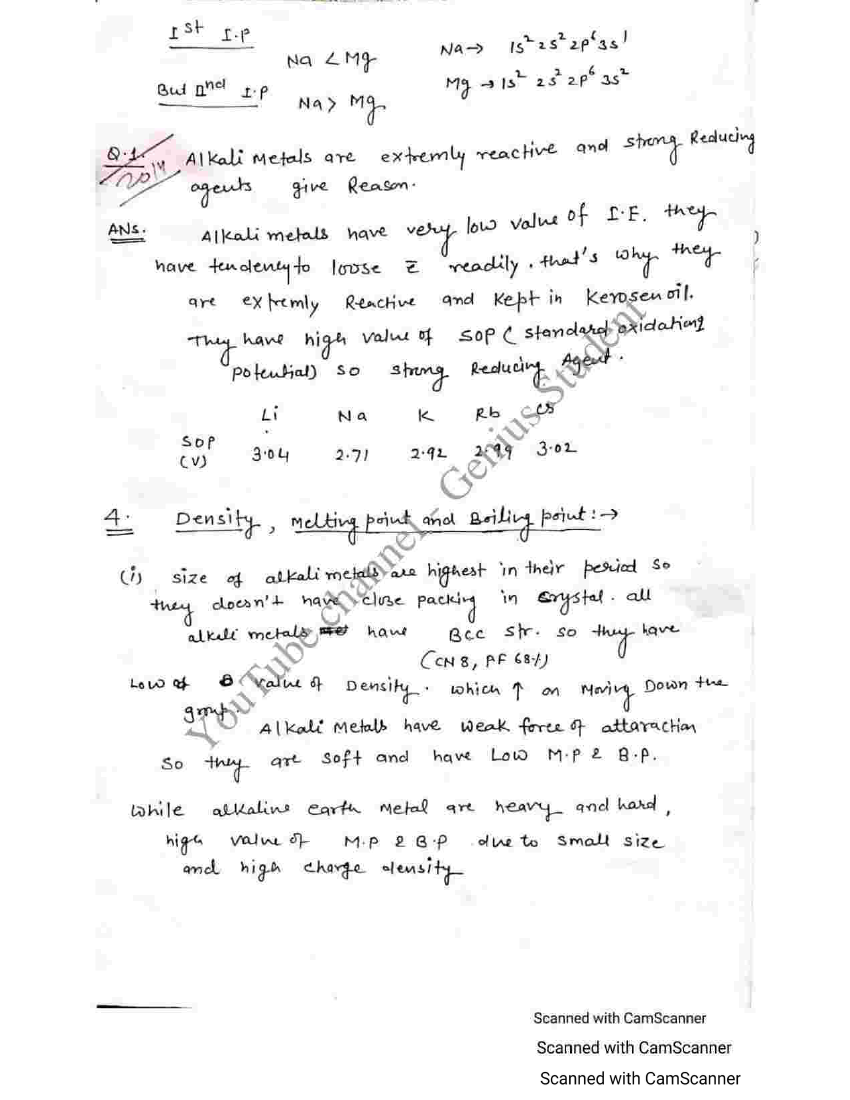 Ist I.P
Na < Mg
Na → 1s² 2s² 2p⁶ 3s¹
But IInd I.P
Na > Mg
Mg → 1s² 2s² 2p⁶ 3s²
Q.1. Alkali Metals are extremly reactive and strong Reducing
2014 agents give Reason.
ANS. Alkali metals have very low value of I.E. they
have tendency to loose e̅ readily. that's why they
are extremly Reactive and kept in Kerosen oil.
They have high value of SOP (standard oxidation
potential) so strong Reducing Agent.
Li Na K Rb Cs
SOP 3.04 2.71 2.92 2.99 3.02
(V)
4. Density, Melting point and Boiling point:→
(i) size of alkali metals are highest in their period so
they doesn't have close packing in crystal. all
alkali metals have Bcc str. so they have
(CN 8, PF 68%)
Low of value of Density. which ↑ on Moving Down the
group.
Alkali Metals have weak force of attaraction
So they are soft and have Low M.P & B.P.
While alkaline earth Metal are heavy and hard,
high value of M.P & B.P due to small size
and high charge density
YouTube channel - Genius Student
Scanned with CamScanner
Scanned with CamScanner
Scanned with CamScanner